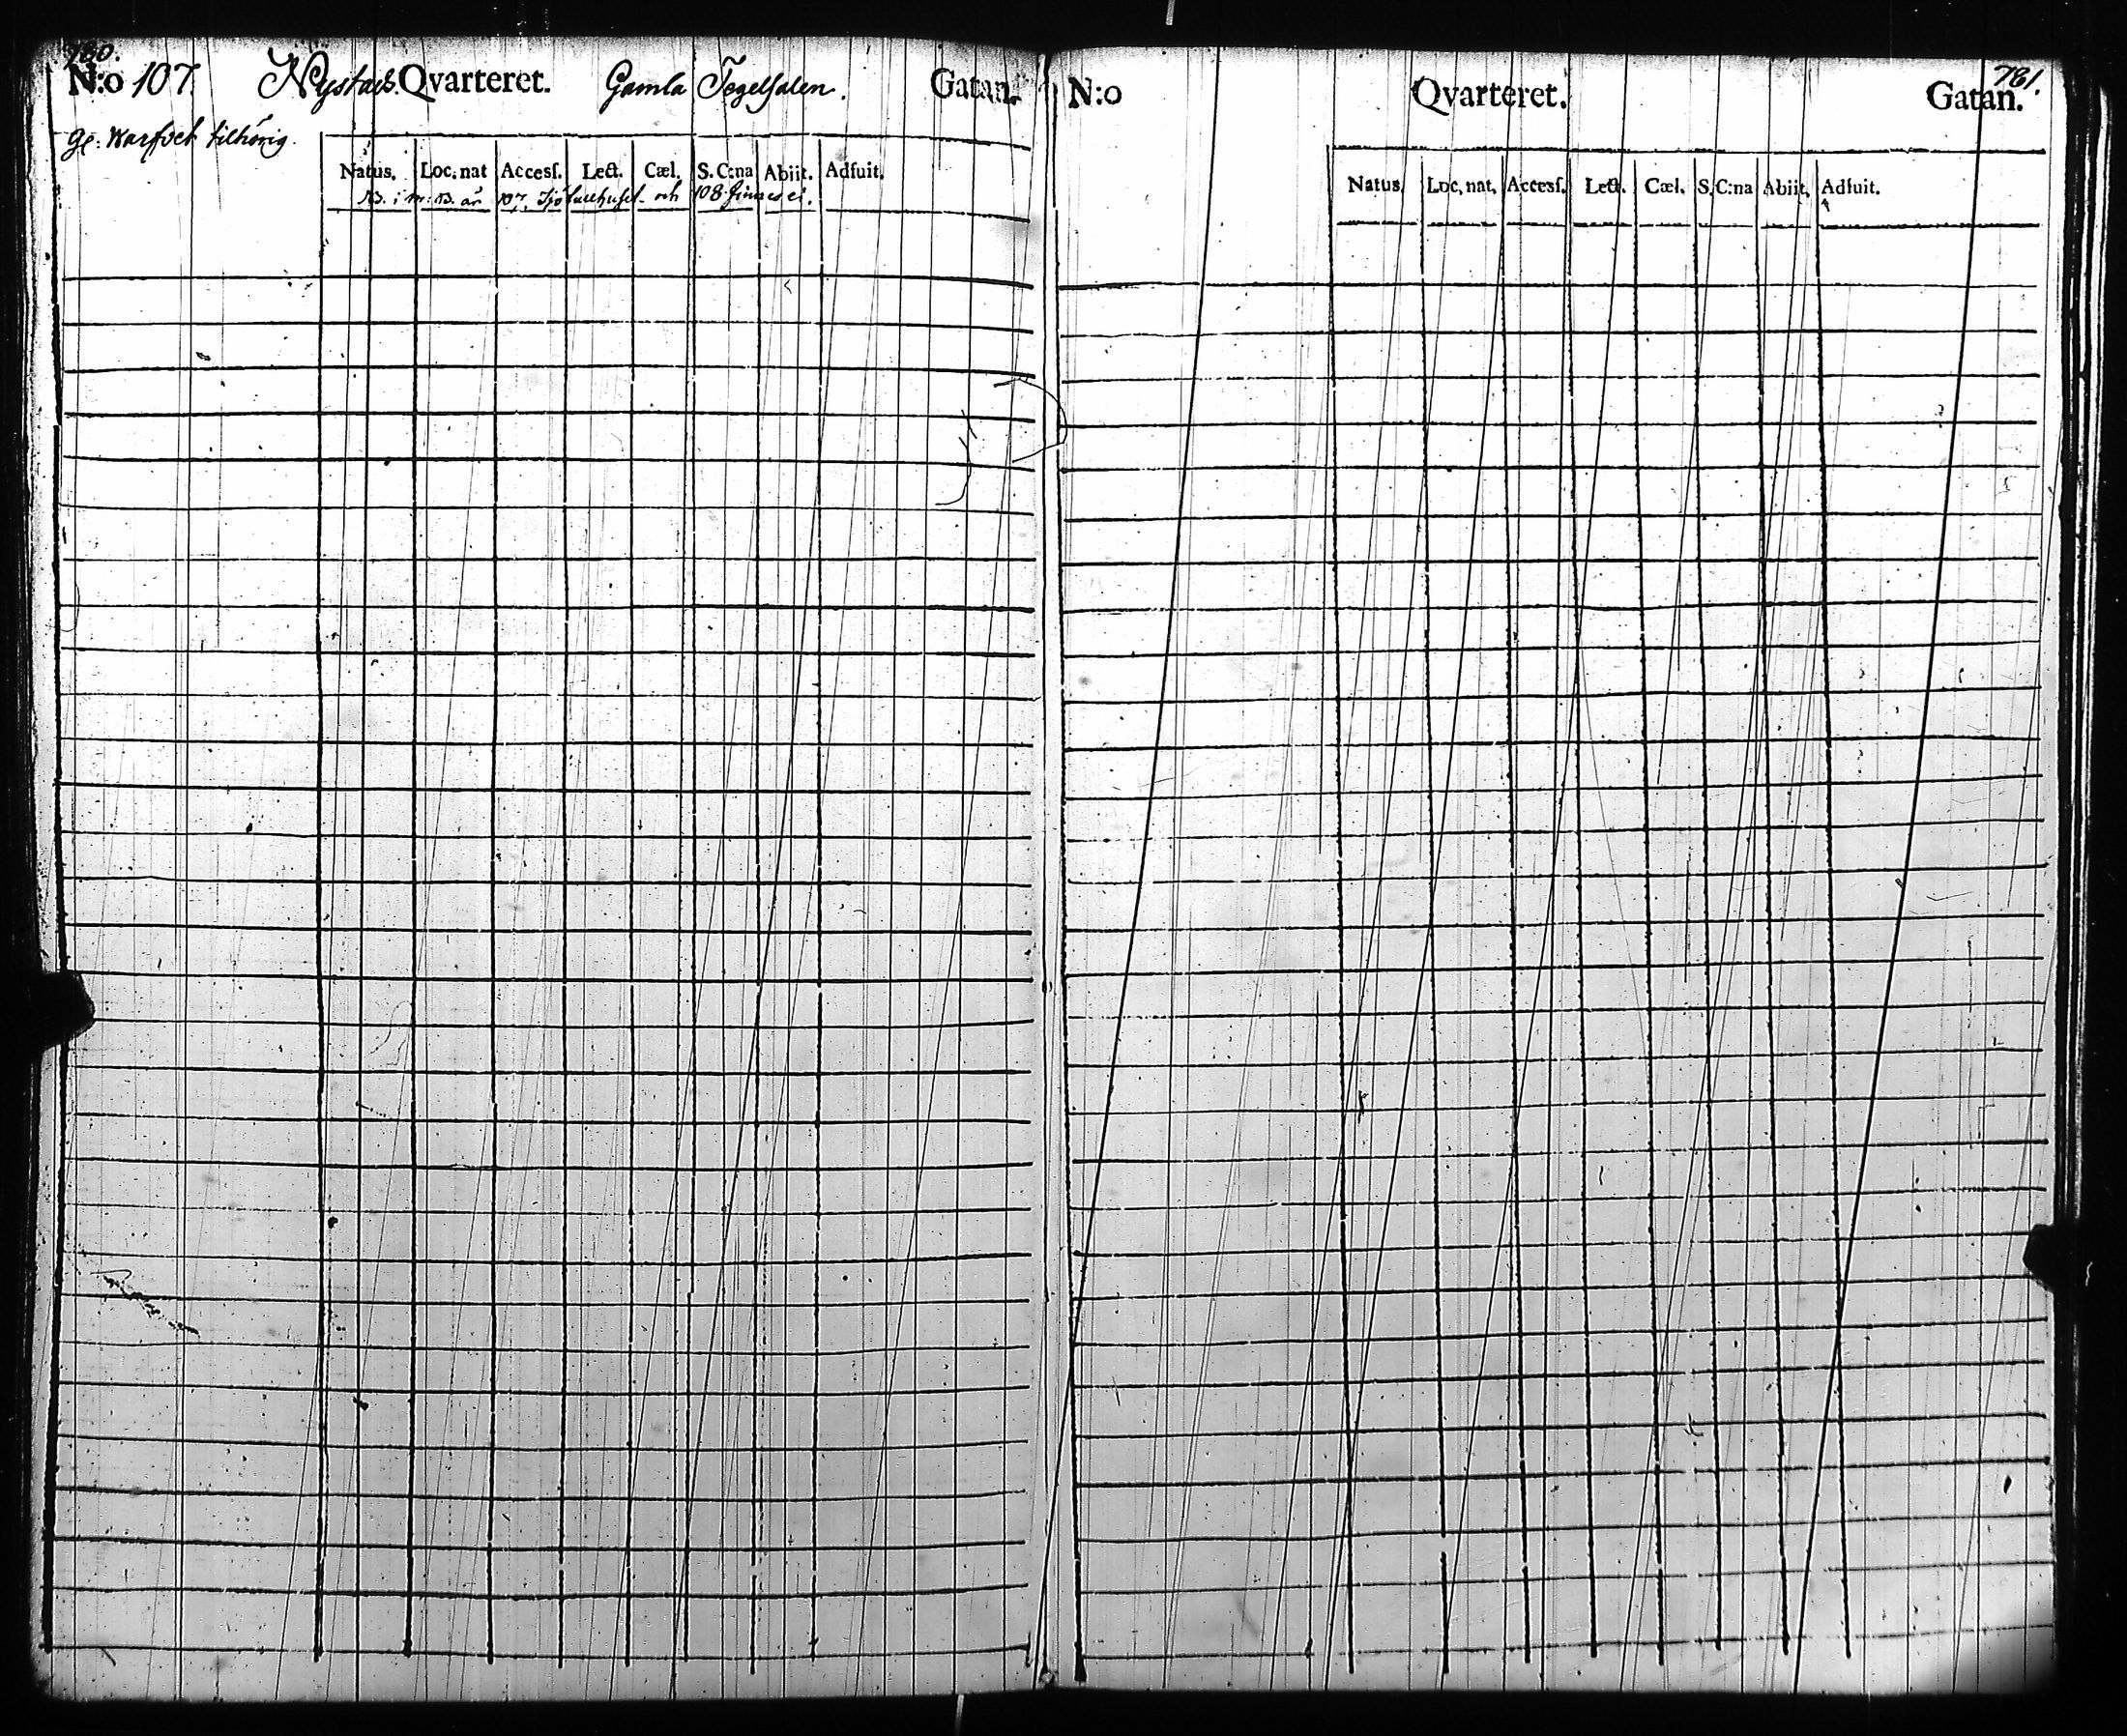 780.
N:o 107. Nystads Qvarteret. Gamla Tegelsalen. Gatan.
Gl: Warfvet tilhörig.
Natus. Loc. nat Accesſ. Lect. Cæl. S. C:na Abiit. Adfuit.
är 107. och 108 finnes ei.
781.
N:o Qvarteret. Gatan.
Natus. Loc. nat. Accesſ. Lect. Cæl. S. C:na Abiit. Adfuit.